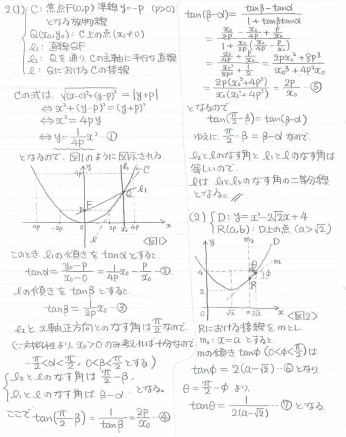 2(1) C: 焦点F(0,p) 準線 y=-p (p>0)
となる放物線
Q(x₀,y₀): C上の点(x₀≠0)
l₁: 直線QF
l₂: Qを通り,Cの主軸に平行な直線
l: QにおけるCの接線
Cの式は, √((x-0)²+(y-p)²) = |y+p|
⇔ x²+(y-p)²=(y+p)²
⇔ x²=4py
⇔ y=1/(4p) x² -①
となるので 図1のように図示される.
4p
l₂
C
l₁
F
P
Q
-4p -2p 0 2p x₀ 4p
l
<図1>
このとき l₁の傾きを tanαとすると
tanα=(y₀-p)/(x₀-0)=1/(4p) x₀-p/x₀ -②
lの傾きを tanβとすると
tanβ=1/(2p) x₀ -③
l₂とx軸正方向とのなす角はπ/2なので
(∵対称性より, x₀>0のみ考えれば十分なので,
-π/2<α<π/2, 0<β<π/2とする)
l₂とlのなす角は π/2-β,
l₁とlのなす角は β-α となる。
ここで tan(π/2-β)=1/tanβ=2p/x₀ -④
tan(β-α)=(tanβ-tanα)/(1+tanβtanα)
=(x₀/2p-x₀/4p+p/x₀)/(1+x₀/2p(x₀/4p-p/x₀))
=(x₀/4p+p/x₀)/(x₀²/8p²+1/2)=(2px₀²+8p³)/(x₀³+4p²x₀)
=2p(x₀²+4p²)/x₀(x₀²+4p²)=2p/x₀ -⑤
となるので
tan(π/2-β)=tan(β-α)
ゆえに π/2-β=β-α なので
l₂とlのなす角と l₁とlのなす角は
等しいので,
lは l₁と l₂のなす角の二等分線
となる。
(2) D: y=x²-2√2x+4
R(a,b): D上の点 (a>√2)
y
m₂
D
m
4
2
θ
φ
R
0 √2 a 2√2 x
<図2>
Rにおける接線をmとし
m₂: x=a とすると,
mの傾き tanφ(0<φ<π/2)は
tanφ=2(a-√2) -⑥となり
θ=π/2-φ より,
tanθ=1/(2(a-√2)) -⑦となる